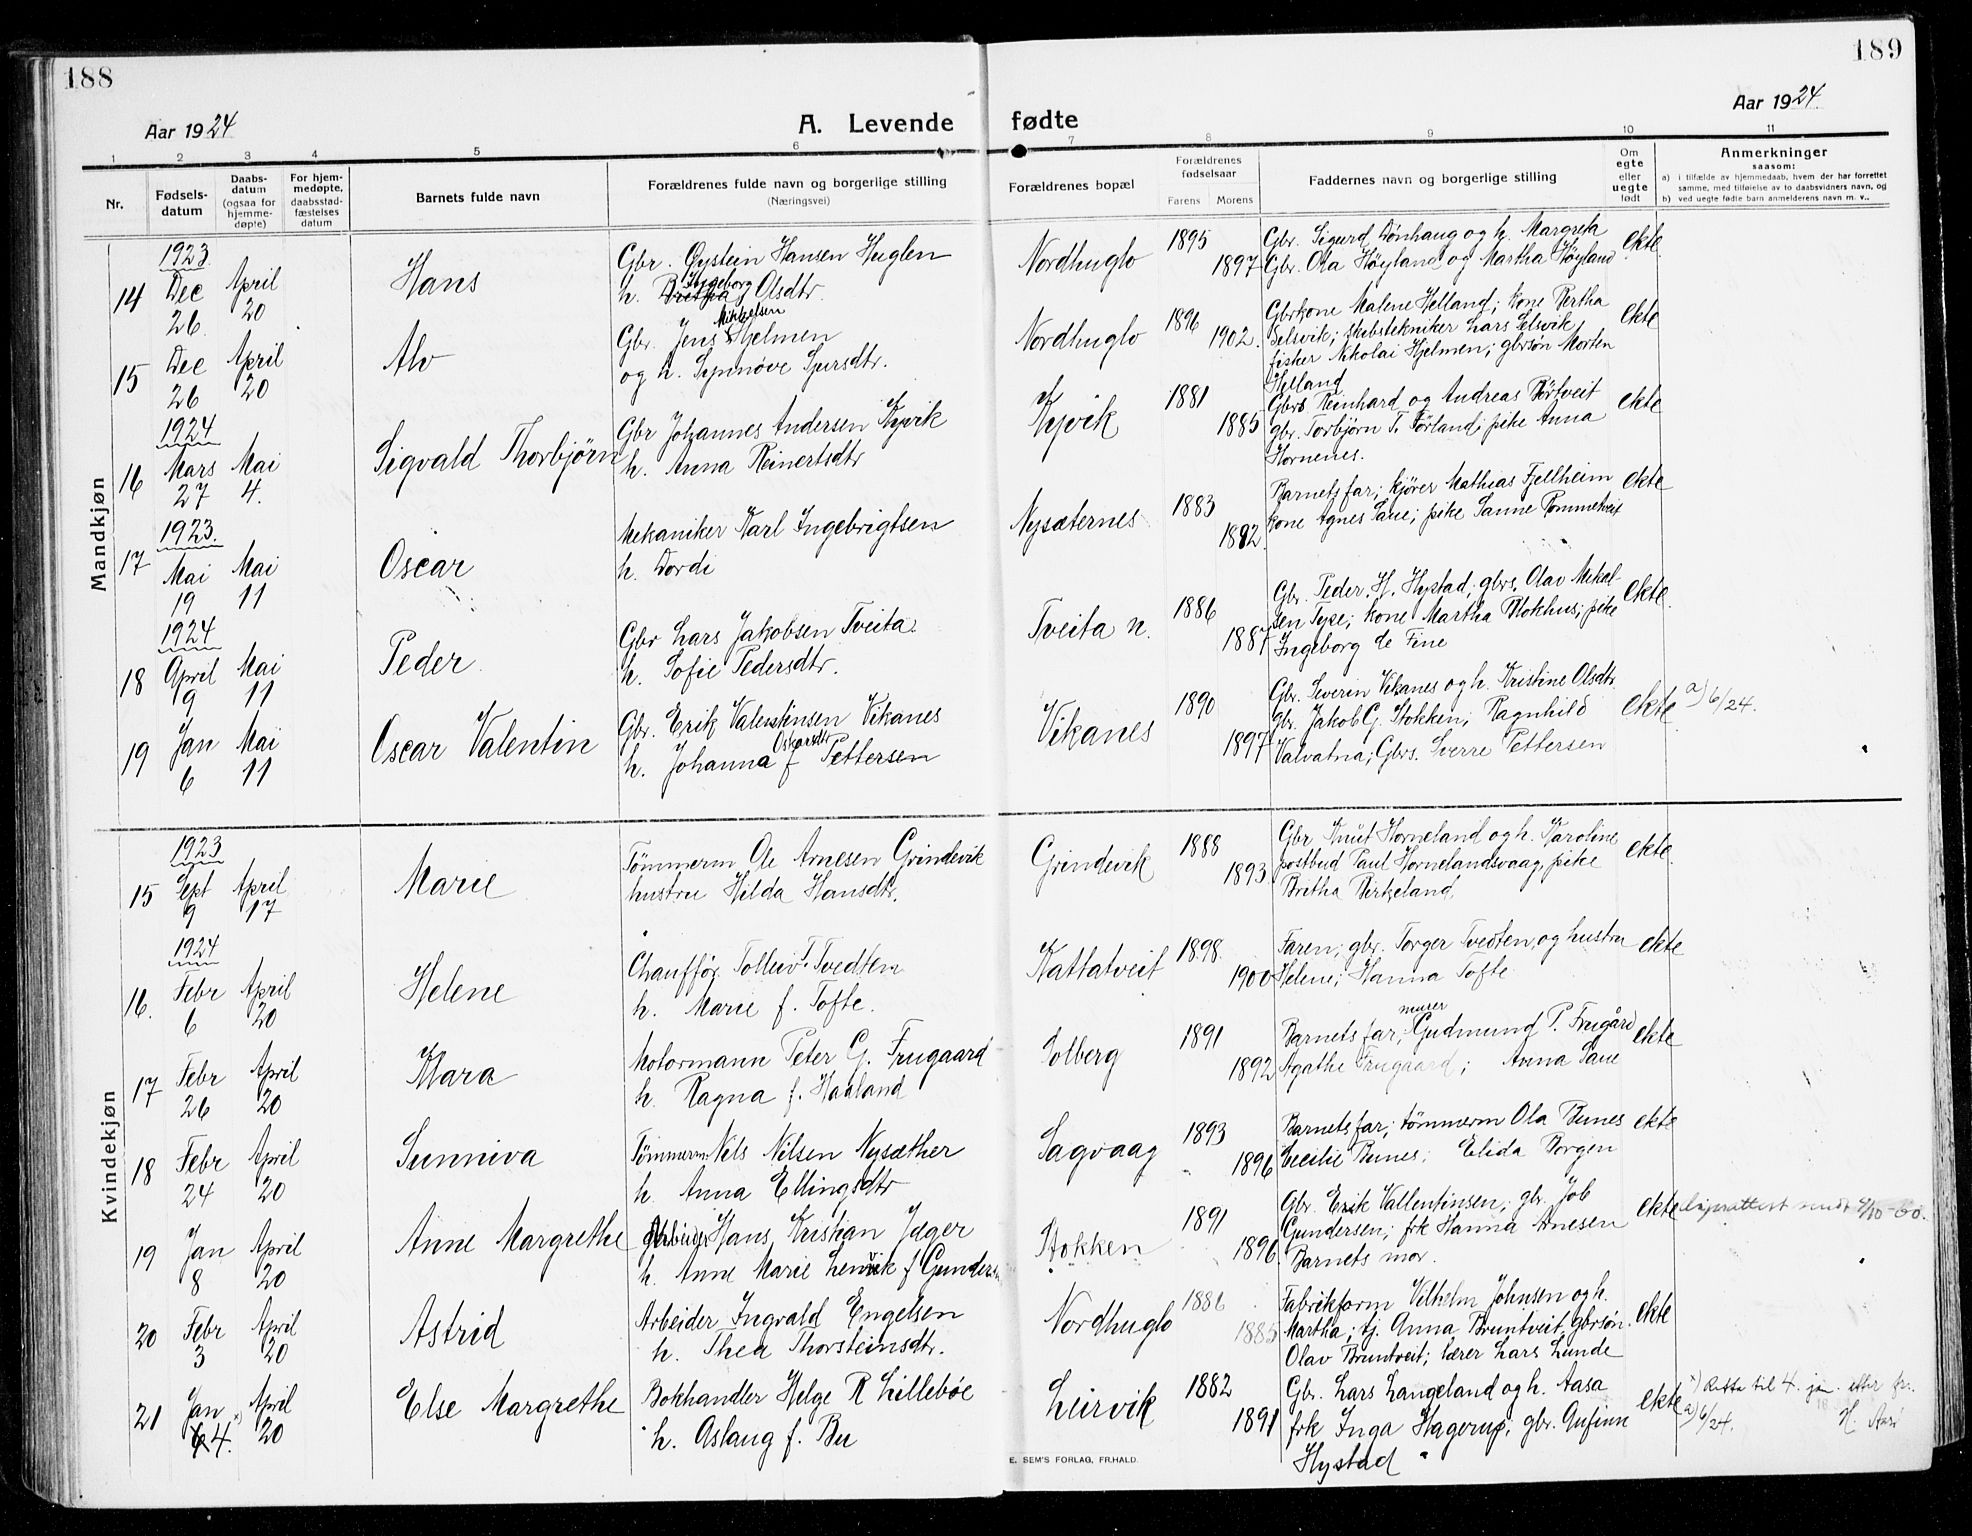 188
189
Aar 1924
A. Levende fødte
Aar 1924.
1 2 3 4 5 6 7 8 9 10 11
Nr.
Fødsels-
datum
Daabs-
datum
(ogsaa for
hjemme-
døpte)
For hjem-
medøpte,
daabsstad-
fæstelses
datum
Barnets fulde navn
Forældrenes fulde navn og borgerlige stilling
(Næringsvei)
Forældrenes bopæl
Forældrenes
fødselsaar
Farens Morens
Faddernes navn og borgerlige stilling
Om
egte
eller
uegte
født
Anmerkninger
saasom:
a) i tilfælde av hjemmedaab, hvem der har forrettet
samme, med tilføielse av to daabsvidners navn, og
b) ved uegte fødte barn anmelderens navn m. v..
Mandkjøn
14
1923
Dec
26
April
20
Hans
Gbr. Øystein Hansen Huglen
h. Britha Ingeborg Olsdtr.
Nordhuglo
1895
1897
Gbr. Sigurd Dønhaug og h. Margreta
Gbr. Ola Høyland og Martha Høyland
ekte
15
Dec
26
April
20
Alv
Gbr. Jens Mikkelsen Hjelmen
og h. Synnøve Sjursdtr.
Nordhuglo
1896
1902.
Gbrkone Malene Helland; kone Bertha
Selsvik; skibstekniker Lars Selsvik,
fisker Nikolai Hjelmen; gbrsøn Morten
Helland
ekte
16
1924
Mars
27
Mai
4.
Sigvald Thorbjørn
Gbr Johannes Andersen Kyvik
h. Anna Reinertsdtr
Kyvik
1881
1885
Gbrs Reinhard og Andreas Børtveit
gbr. Torbjørn T. Førland; pike Anna
Hornenes.
ekte
17
1923.
Mai
19
Mai
11
Oscar
Mekaniker Karl Ingebrigtsen
h. Dordi
Nysæternes
1883
1882.
Barnets far; kjører Mathias Fjellheim
kone Agnes Saue; pike Sanne Rommetveit
ekte
18
1924
April
9
Mai
11
Peder
Gbr Lars Jakobsen Tveita.
h. Sofie Pedersdtr.
Tveita n.
1886
1887
Gbr. Peder. H. Hystad; gbrs. Olav Mikal-
sen Tyse; kone Martha Blokhus; pike
Ingeborg de Fine
ekte.
19
Jan
6
Mai
11
Oscar Valentin
Gbr. Erik Valentinsen Vikanes
h. Johanna Oskarsdtr f Pettersen
Vikanes
1890
1897
Gbr. Severin Vikanes og h. Kristine Olsdtr.
Gbr. Jakob G. Stokken; Ragnhild
Valvatna; Gbrs. Sverre Pettersen
ekte
a) 6/24.
Kvindekjøn
15
1923
Sept
9
April
17
Marie
Tømmerm Ole Arnesen Grindevik
hustru Hilda Hansdtr.
Grindevik
1888
1893
Gbr Knut Horneland og h. Karoline
postbud Paul Hornelandsvaag, pike
Britha Birkeland
ekte
16.
1924
Febr
6
April
20
Helene
Chauffør Tolleiv T. Tvedten
h. Marie f. Tofte.
Kattatveit
1898.
1900
Faren; gbr. Torger Tvedten, og hustru
Helene; Hanna Tofte
ekte
17
Febr
26
April
20
Klara
Motormann Peter G. Frugaard
h. Ragna f. Haaland
Solberg
1891
1892
Barnets far; murer Gudmund P. Frugård
Agathe Frugaard; Anna Saue
ekte
18
Febr
24
April
20
Sunniva
Tømmerm. Nils Nilsen Nysæther
h. Anna Ellingsdtr
Sagvaag
1893
1896
Barnets far; tømmerm Ola Bunes
Cecilie Bunes; Elida Borgen
ekte
19
Jan
8
April
20
Anne Margrethe
Arbeider Hans Kristian Jæger
h. Anne Marie Lervik f Gundersen
Stokken
1891
1896.
Gbr. Erik Vallentinsen; gbr. Job
Gundersen; frk Hanna Arnesen
Barnets mor.
ekte
20
Febr
3
April
20
Astrid
Arbeider Ingvald Engelsen
h. Thea Thorsteinsdtr.
Nordhuglo
1886
1885
Fabrikform Vilhelm Johnsen og h.
Martha; tj. Anna Bruntveit, gbrsøn.
Olav Bruntveit; lærer Lars Lunde
ekte
21
Jan
4. x)
April
20
Else Margrethe
Bokhandler Helge R Lillebøe
h. Aslaug f. Bu
Leirvik
1882
1891
Gbr. Lars Langeland og h. Aasa
frk Inga Hagerup; gbr. Anfinn
Hystad
ekte
x) Retta til 4. jan. etter
a) 6/24.
E. SEM'S FORLAG, FR.HALD.